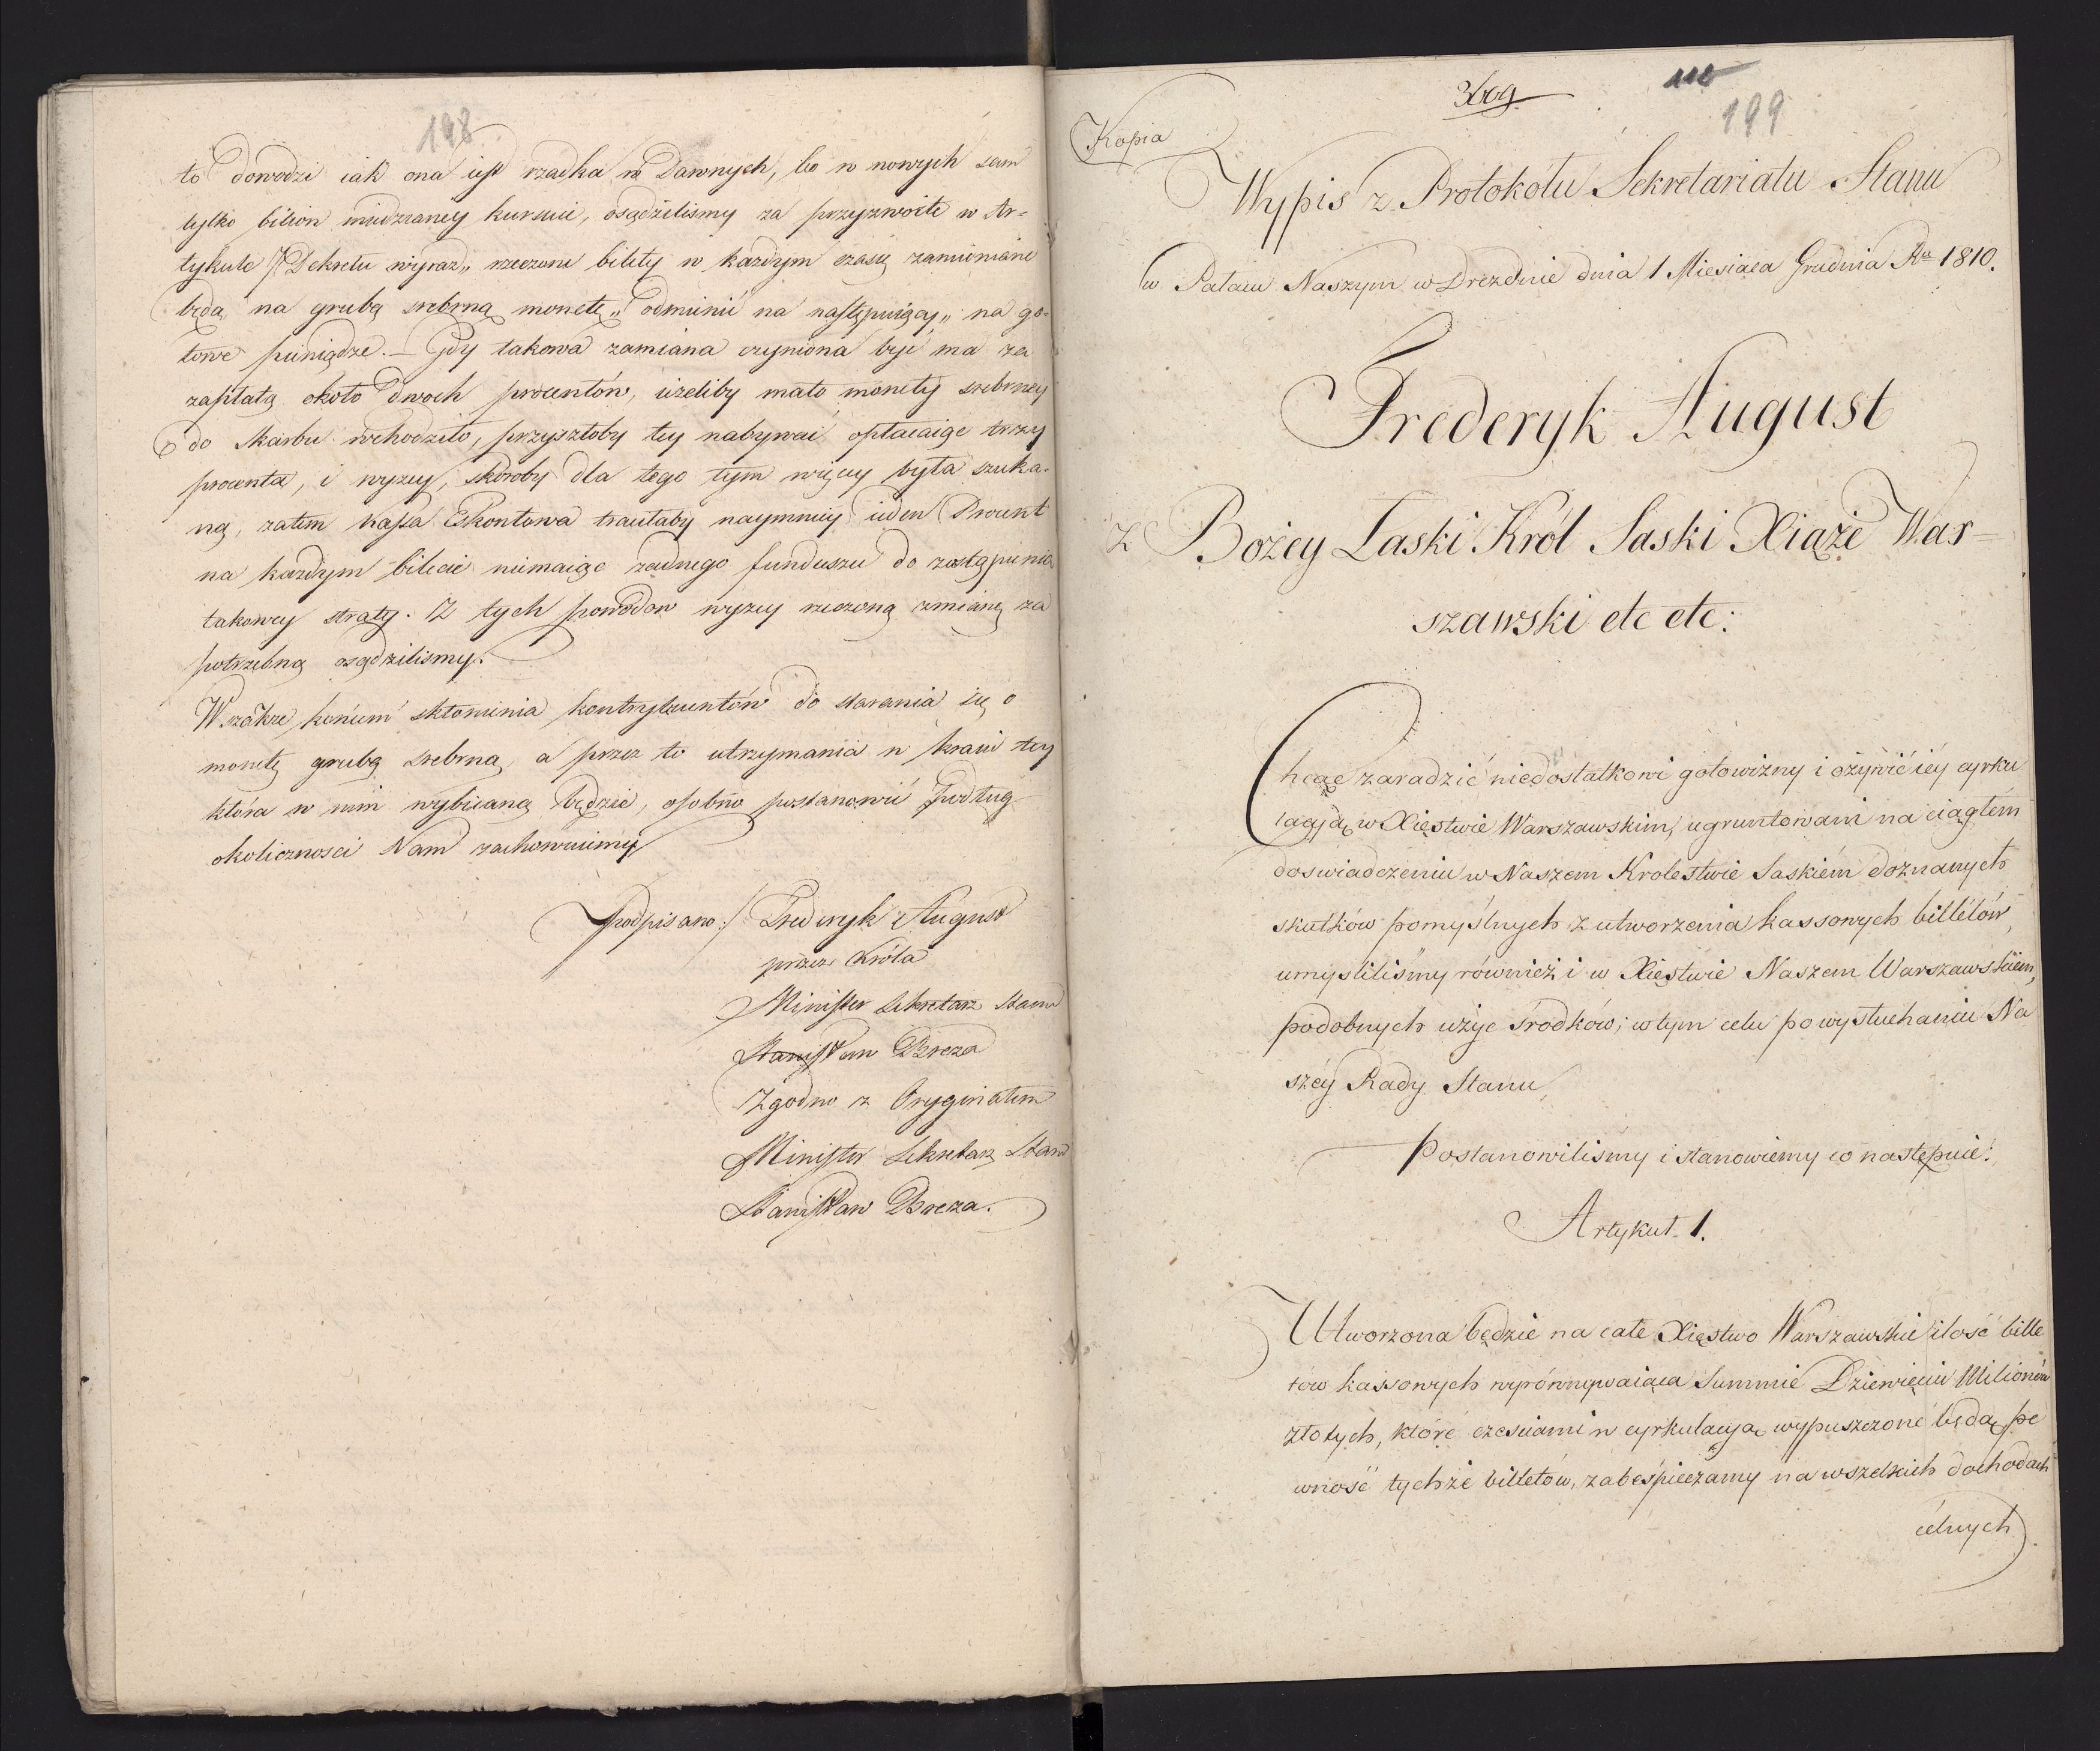 198
to dowodzi iak ona iest rzadka w Dawnych, bo w nowych sam
tylko bilion miedzianey kursuie, osądzilismy za przyzwoite w Ar-
tykule 7 Dekretu wyraz „ rzeczone bilety w każdym czasie zamieniane
będą na grubą srebrną monetę „ odmienić na następuiący „ na go-
towe pieniądze. — Gdy takowa zamiana czyniona być ma za
zapłatą około dwoch procentów, ieżeliby mało monety srebrney
do skarbu wchodziło, przyszłoby tey nabywać opłacaiąc trzy
procenta, i wyzey, skoroby dla tego tym więcey była szuka-
ną, zatem kassa Eskontowa traciłaby naymniey ieden Procent
na każdym bilecie niemaiąc żadnego funduszu do zastąpienia
takowey straty. Z tych powodow wyzey rzeczoną zmianę za
potrzebną osądzilismy.
Wszakże końcem skłonienia kontrybuentów do starania się o
monetę grubą srebrną, a przez to utrzymania w kraiu tey
która w nim wybiianą będzie, osobno postanowić podług
okoliczności Nam zachowuiemy
podpisano:/ Frederyk August
przez Króla
Minister Sekretarz Stanu
Stanisław Breza
Zgodno z Oryginałem
Minister Sekretarz Stanu
Stanisław Breza.
3609
110
199
Kopia
Wypis z Protokółu Sekretariatu Stanu
w Pałacu Naszym w Dreznie dnia 1 Miesiaca Grudnia Ru 1810.
Frederyk August
Z Bożey Łaski Król Saski Xiąże War-
szawski etc etc:
Chcąc zaradzić niedostatkowi gotowizny i ożywić iéy cyrku
lacyią w Xięstwie Warszawskim, ugruntowani na ciągłém
doswiadczeniu w Naszem Krolestwie Saskiém doznanych
skutków pomyślnych z utworzenia kassowych billétów,
umyśliliśmy również i w Xięstwie Naszem Warszawskiem,
podobnych użyć środków; w tym celu po wysłuchaniu Na
széy Rady Stanu,
Postanowiliśmy i stanowiemy co następuie:
Artykuł 1.
Utworzona będzie na całe Xięstwo Warszawskie ilość bille
tów kassowych wyrównywaiąca Summie Dziewięciu Milionów
złotych, które częsciami w cyrkulacyą wypuszczoné będą, pe
wność tychże billetów, zabespieczamy na wszelkich dochodach
célnych